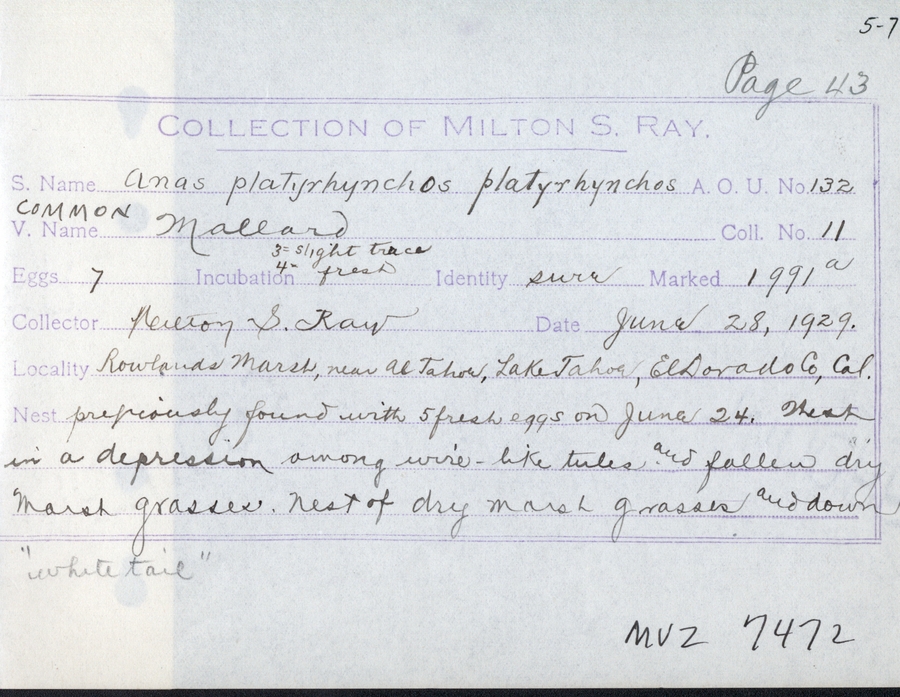 5-7
Page 43
COLLECTION OF MILTON S. RAY.
S. Name Anas platyrhynchos platyrhynchos A. O. U. No. 132
COMMON
V. Name Mallard Coll. No. 11
3= slight trace
Eggs 7 Incubation 4= fresh Identity sure Marked 1991a
Collector Milton S. Ray Date June 28, 1929.
Locality Rowlands Marsh, near Al Tahoe, Lake Tahoe, El Dorado Co, Cal.
Nest previously found with 5 fresh eggs on June 24. Nest
in a depression among wire-like tules and fallen dry
Marsh grasses. Nest of dry marsh grasses and down
"white tail"
MVZ 7472